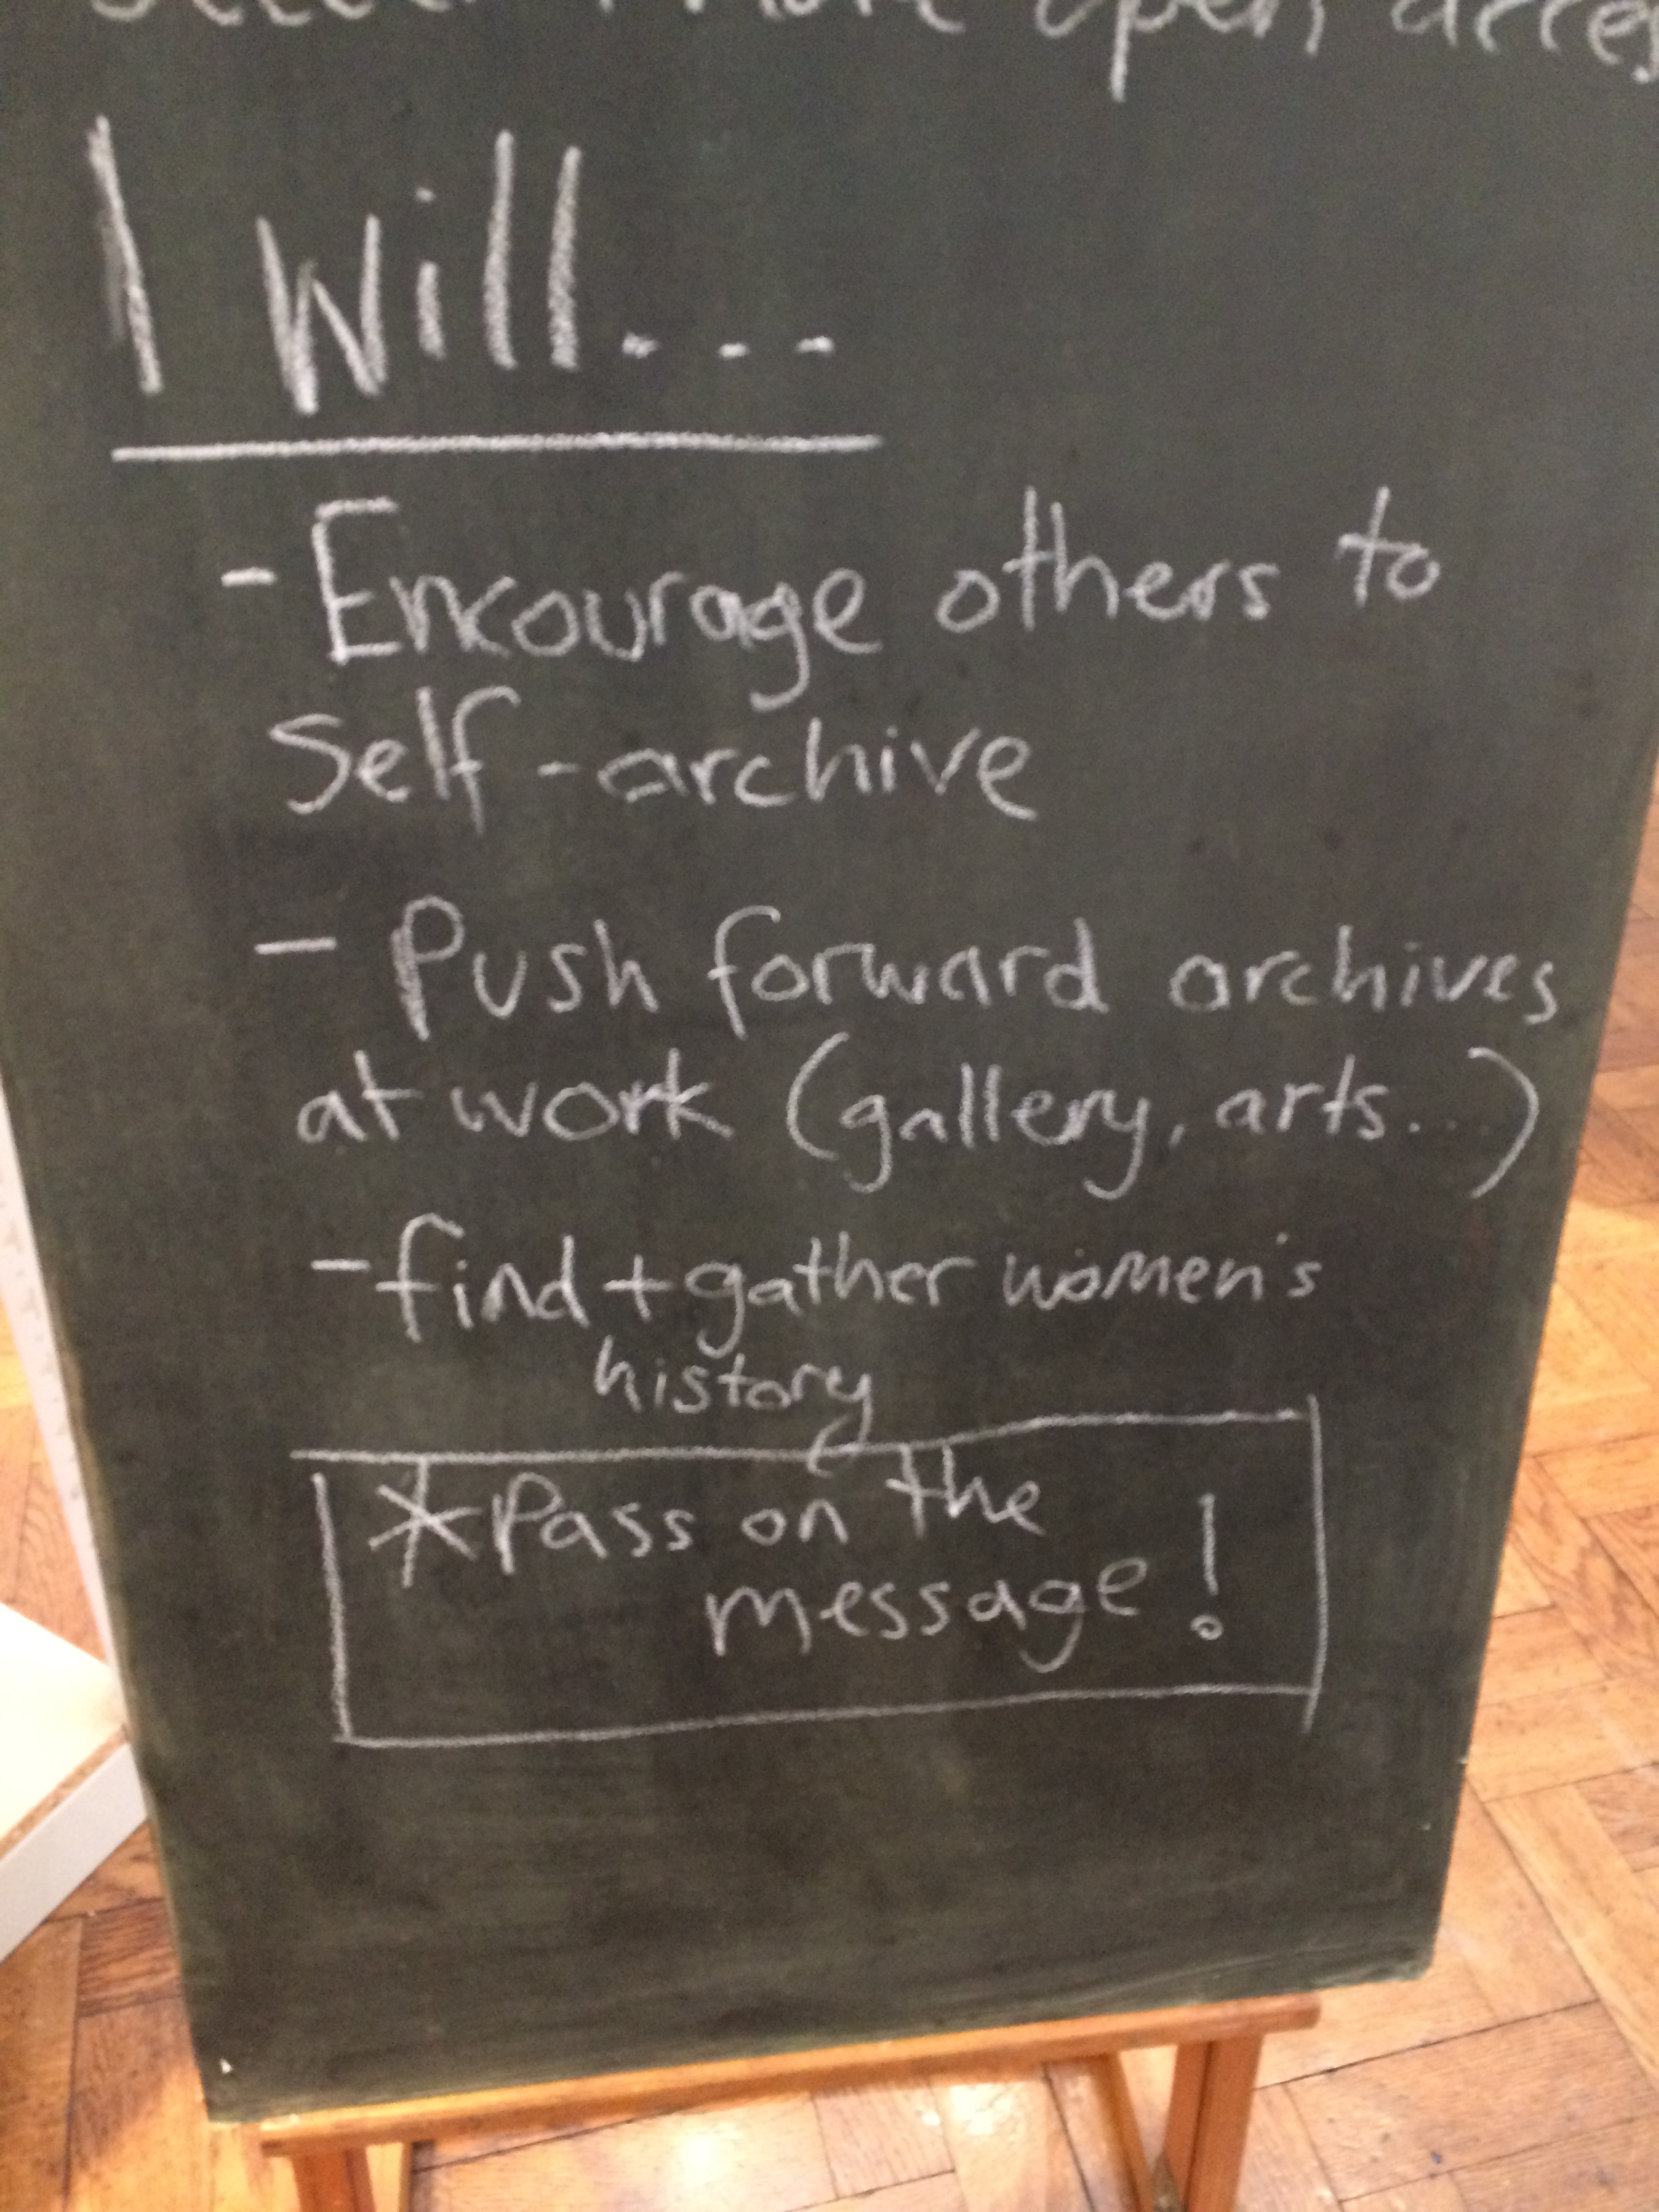 more open access
I will...
- Encourage others to
Self-archive
- Push forward archives
at work (gallery, arts...)
- find + gather women's
history
* Pass on the
message!